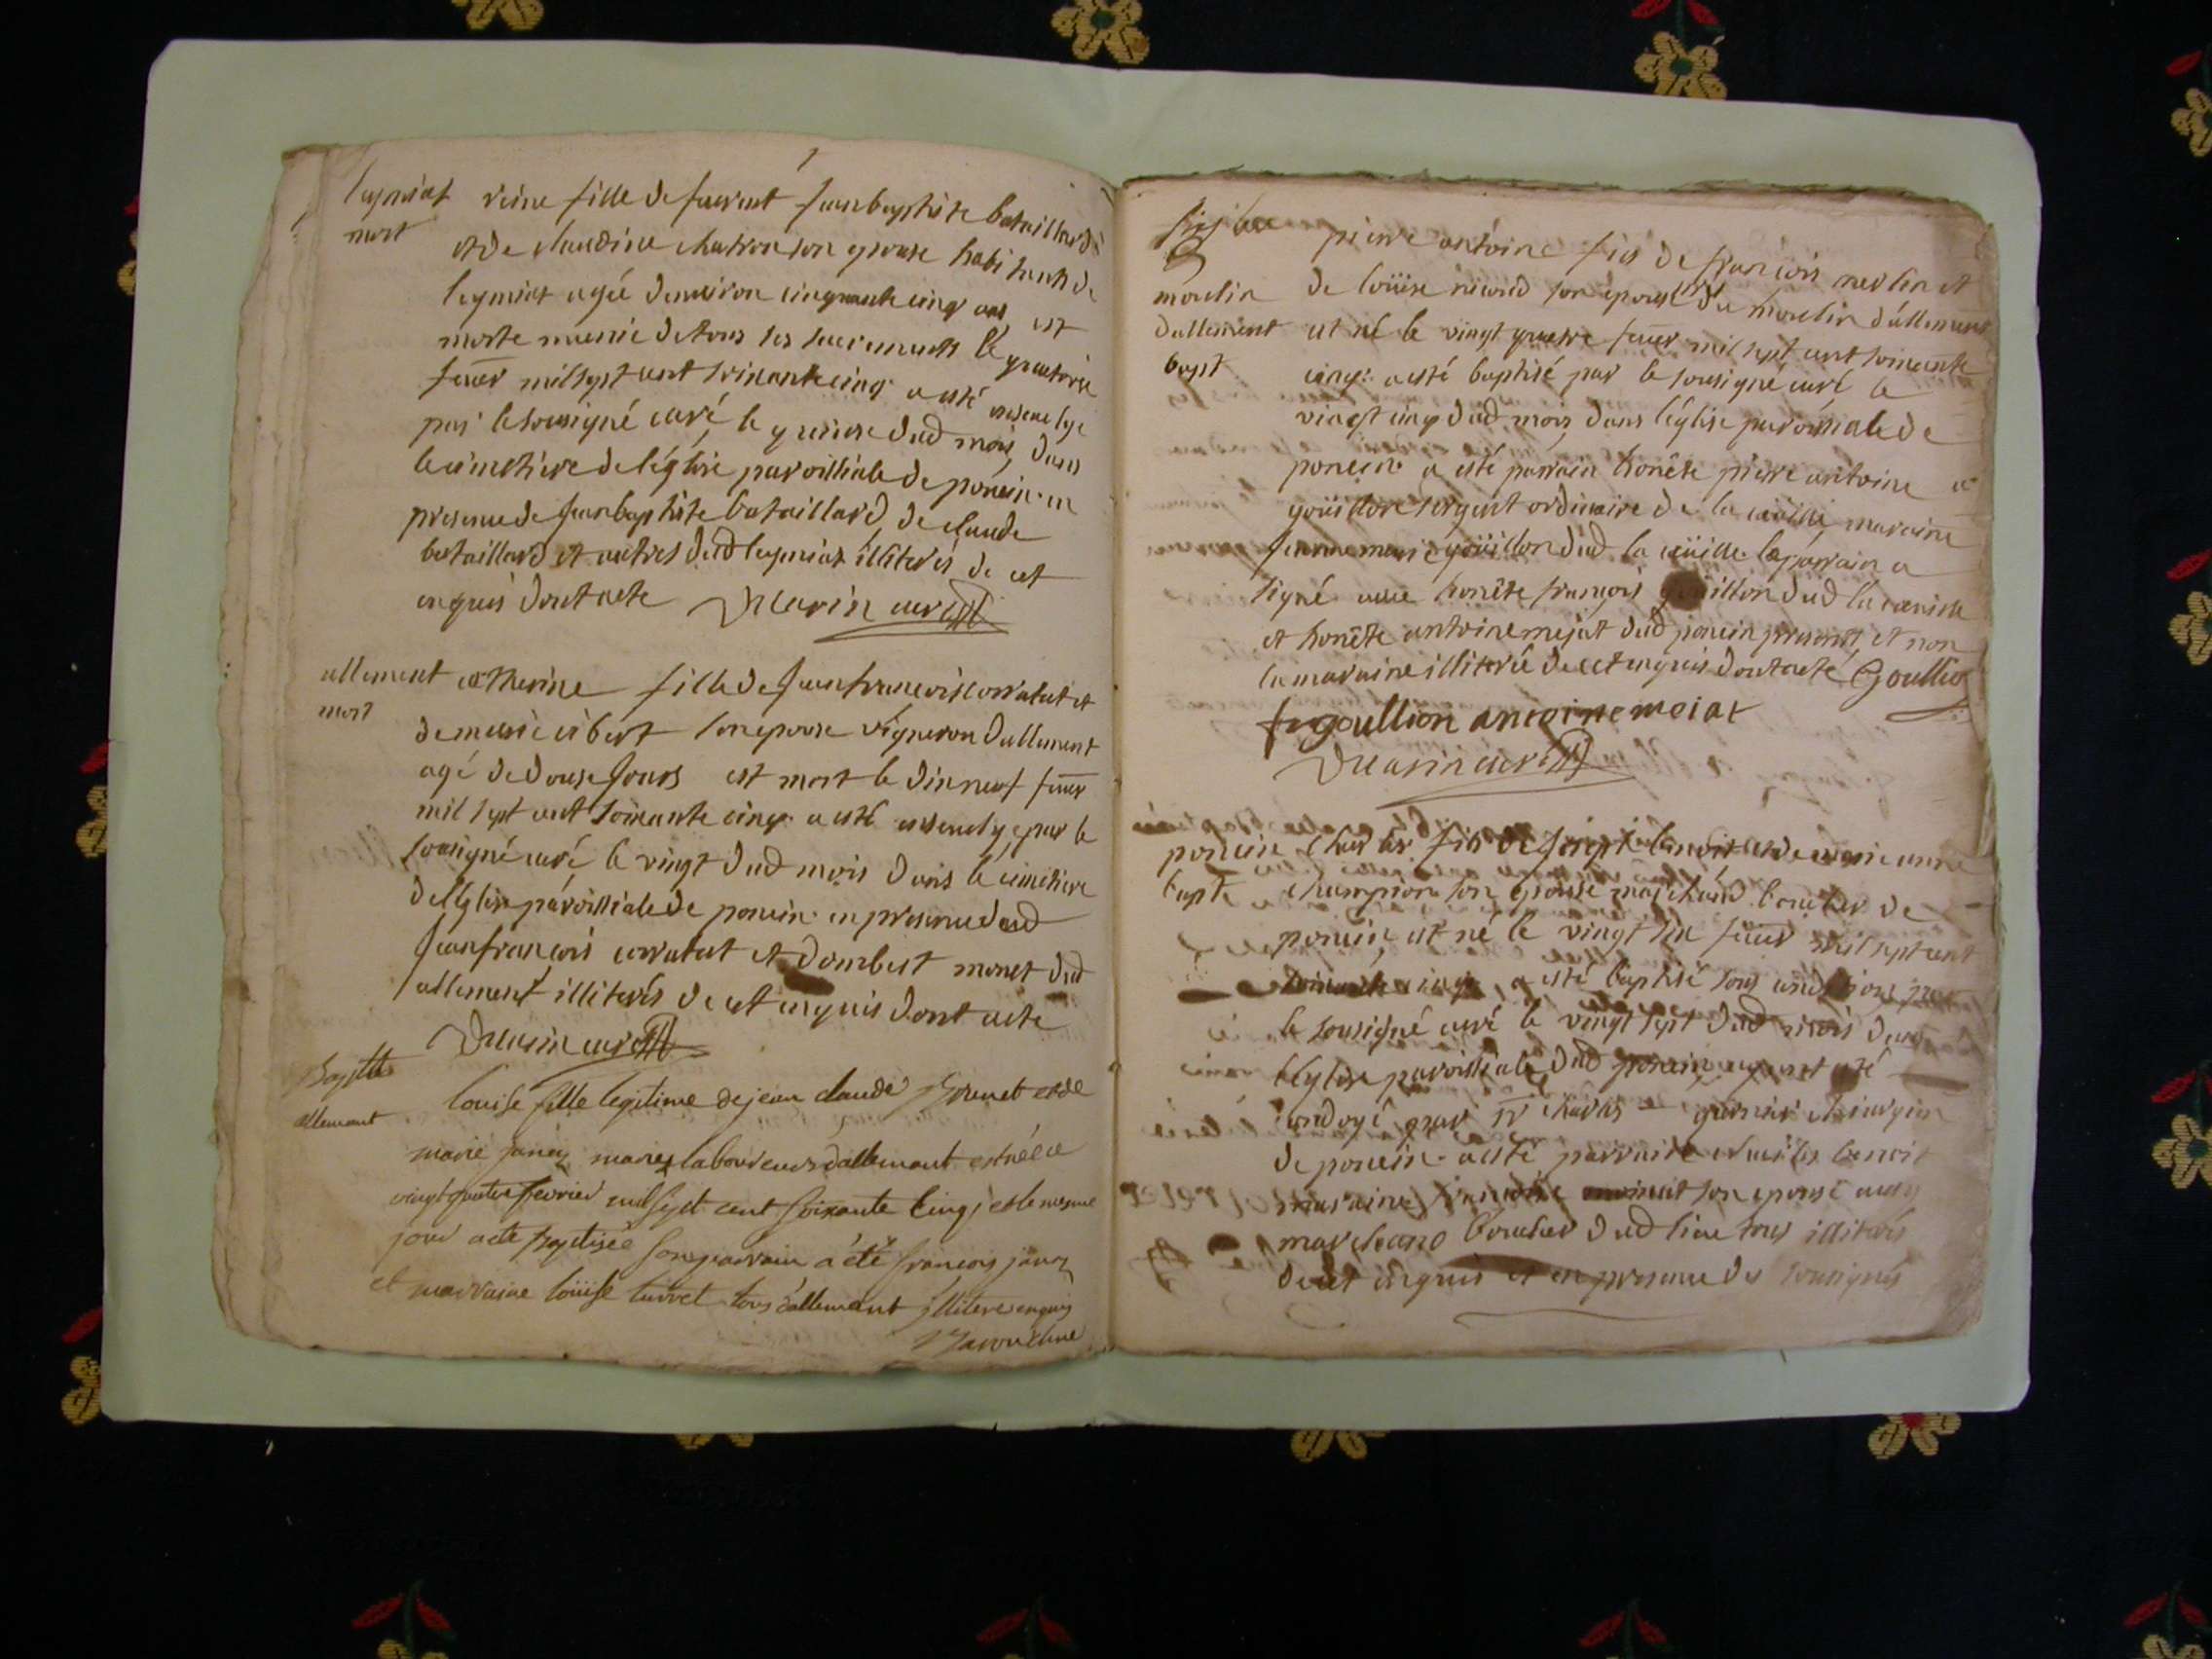 leymiat
mort
reine fille de feu jeanbaptiste bataillard
et de claudine chatron son epouse habitants de
leymiat agée denviron cinquante cinq ans est
morte munie de tous ses sacrements le quatorze
fever mil sept cent soixante cinq a esté ensevelye
par le sousigné curé le quinze dud mois dans
le cimetiere de léglise paroissiale de poncin en
presence de jeanbaptiste bataillard, de claude
bataillard et autres dud leymiat illiterés de cet
enquis dont acte curé
allement
mort
catherine fille de jeanfrancois corratat et
de marie son epouse vigneron dallement
agé de douse jours est mort le dix neuf fever
mil sept cent soixante cinq a esté ensevely par le
sousigné curé le vingt dud mois dans le cimetiere
de léglise paroissiale de poncin en presence dud
jeanfrançois corratat et dombest monet dud
allement illiterés de cet enquis dont acte
curé
allemant
louise fille legitime de jean claude et de
marie janez mariez laboureurs dallemant est née le
vingt quatre fevrier mil sept cent soixante cinq et le mesme
jour a eté baptisée son parrain a été françois janez
et marraine loüise turrel tous dallemant illiteres enquis
moulin
dallement
bapt
pierre antoine fils de françois merlin et
de loüise son epouse du moulin dallement
est né le vingt quatre fever mil sept cent soixante
cinq a esté baptisé par le sousigné curé le
vingt cinq dud mois dans léglise paroissiale de
poncin a esté parrain honête pierre antoine
goüillon sergent ordinaire de la maraine
jeanne marie goüillon dud la le parrain a
signé avec honête françois goüillon dud la
et honête antoine mejat dud poncin presents, et non
la maraine illiterée de cet enquis dont acte Goullion
goullion antoine meiat
curé
poncin
bapt
charles fils de benoit et de marie anne
champion son epouse marchand boucher de
poncin est né le vingt six fever mil sept cent
soixante cinq a esté baptisé sous condition par
le sousigné curé le vingt sept dud mois dans
léglise paroissiale dud poncin ayant eté
ondoyé par sr charles garnier chirurgien
de poncin a esté parrain charles benoit
maraine son epouse aussy
marchand boucher dud lieu tous illiterés
de cet enquis et en presence des sousignés